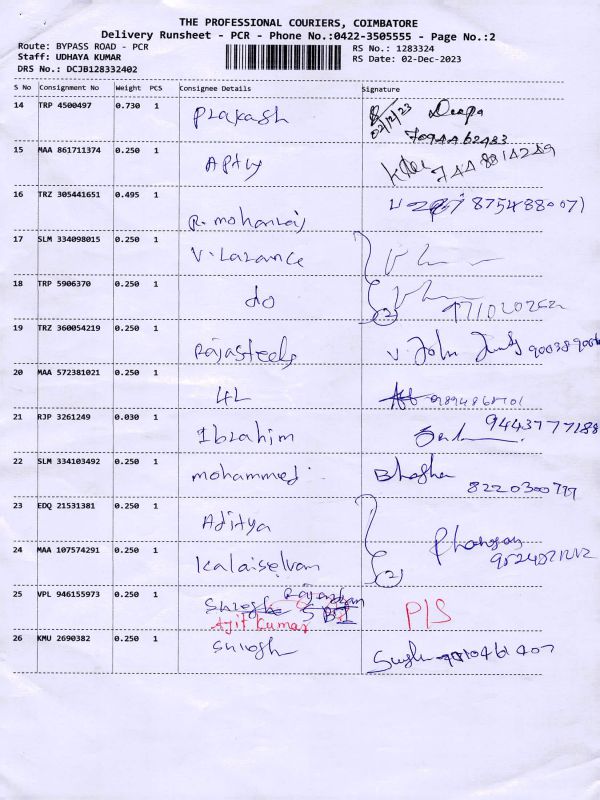 THE PROFESSIONAL COURIERS, COIMBATORE
Delivery Runsheet - PCR - Phone No.:0422-3505555 - Page No.:2
Route: BYPASS ROAD - PCR
Staff: UDHAYA KUMAR
DRS No.: DCJB128332402
RS No.: 1283324
RS Date: 02-Dec-2023
S No Consignment No Weight PCS Consignee Details Signature
14 TRP 4500497 0.730 1 Prakash 02/12/23 Deepa
15 MAA 861711374 0.250 1 Aptiy
16 TRZ 305441651 0.495 1 R. mohanraj
17 SLM 334098015 0.250 1 V. Lazance
18 TRP 5906370 0.250 1 do 2
19 TRZ 360054219 0.250 1 Rajasteels V. John
20 MAA 572381021 0.250 1 4L
21 RJP 3261249 0.030 1 Ibrahim 9443777188
22 SLM 334103492 0.250 1 mohammed Bhagha
8220300799
23 EDQ 21531381 0.250 1 Aditya
24 MAA 107574291 0.250 1 Kalaiselvam 2
25 VPL 946155973 0.250 1 Rajendran SBI P/S
Ajit Kumar
26 KMU 2690382 0.250 1